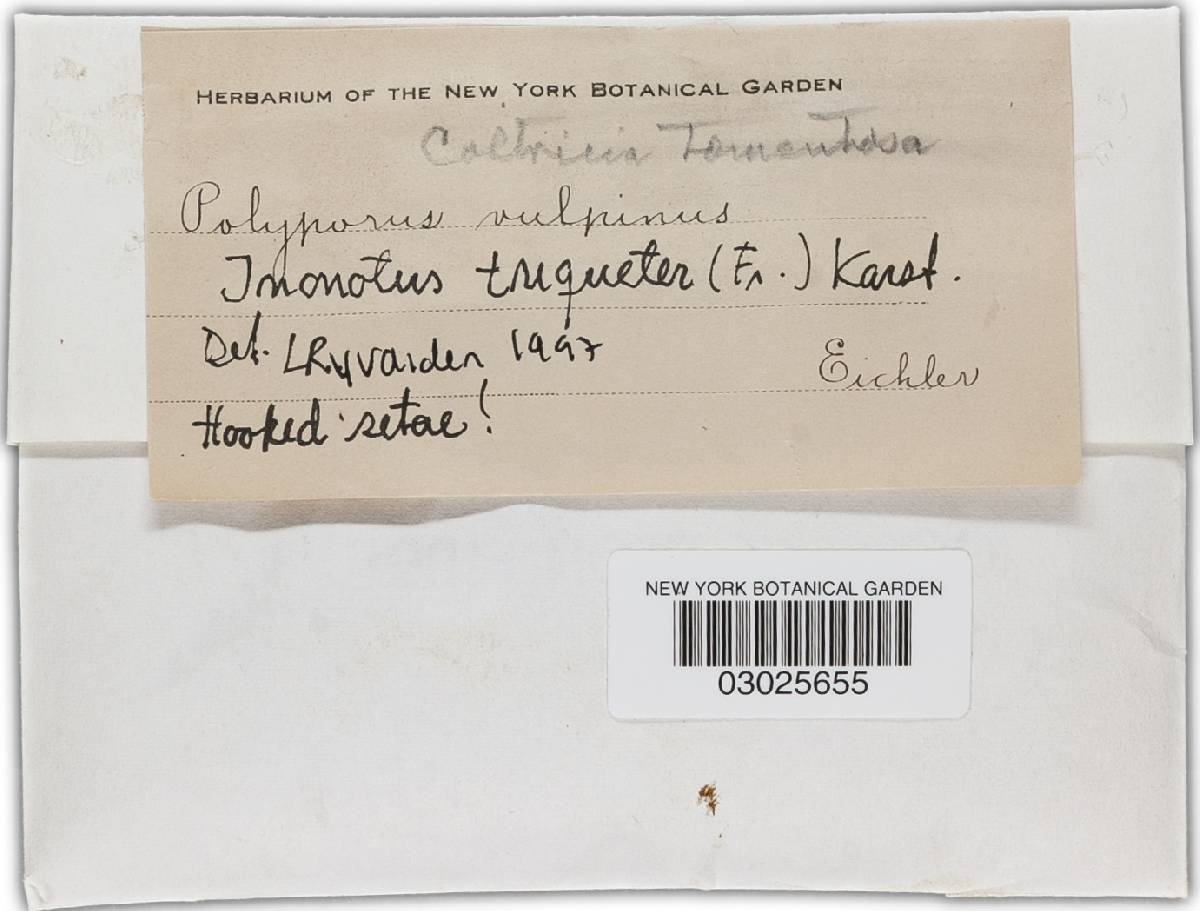 HERBARIUM OF THE NEW YORK BOTANICAL GARDEN
Coltricia Tomentosa
Polyporus vulpinus
Inonotus triqueter (Fr.) Karst.
Det. LRyvarden 1997
Eichler
Hooked setae!
NEW YORK BOTANICAL GARDEN
03025655